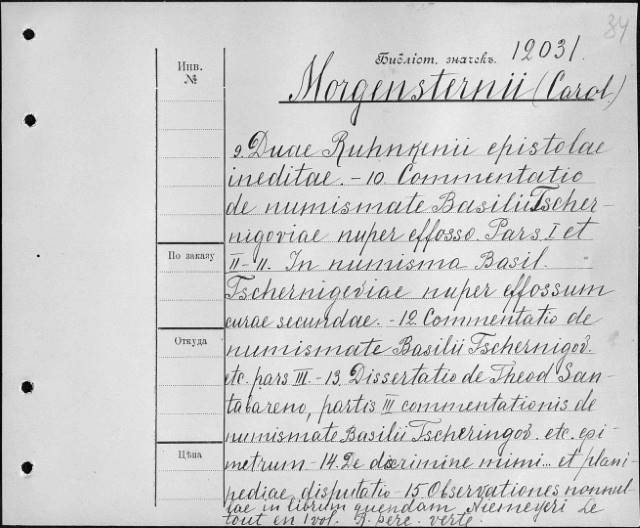 34
Библіот. значекъ. 12031.
Инв.
№
Morgensternii (Carol.)
9. Duae Ruhnkenii epistolae
ineditae. - 10. Commentatio
de numismate Basilii Tscher-
nigoviae nuper effosso. Pars I et
II - 11. In numisma Basil.
По заказу
Tschernigeviae nuper effossum
curae secundae. - 12. Commentatio de
Откуда
numismate Basilii Tschernigov.
etc. pars III. - 13. Dissertatio de Theod San-
tabareno, partis III commentationis de
numismate Basilii Tscheringov. etc. epi-
Цѣна
metrum - 14. De discrimine mimi... et plani-
pediae, disputatio - 15. Observationes nonnul-
lae in librum quendam Niemeyeri Le
tout en 1 vol. A père. verte.